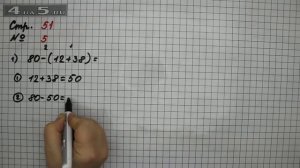 4-na-5.ru
Стр. 51
№ 5
2 1
1) 80-(12+38)=
① 12+38=50
② 80-50=